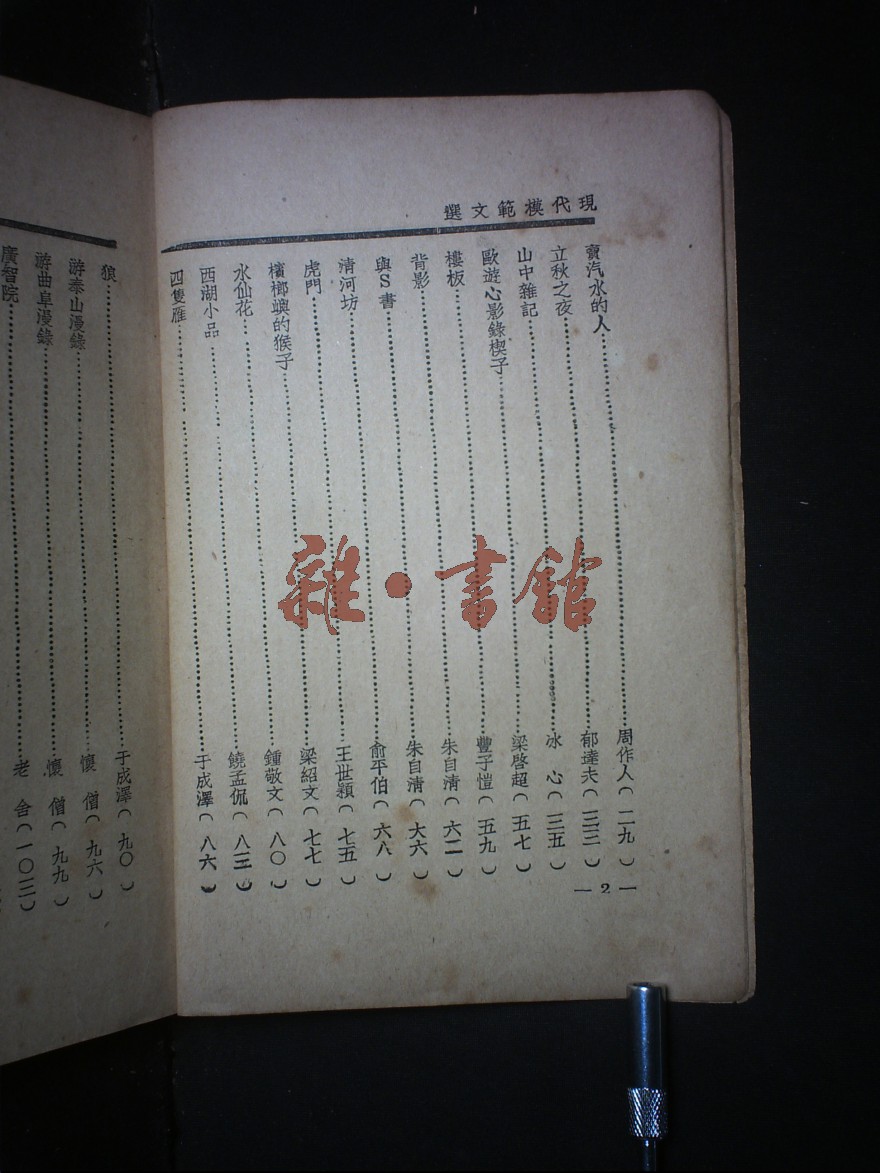 現代模範文選
賣汽水的人……周作人(二九)
立秋之夜……郁達夫(三三)
山中雜記……冰 心(三五)
歐遊心影錄楔子……梁啓超(五七)
樓板……豐子愷(五九)
背影……朱自清(六二)
與S書……朱自清(大六)
清河坊……俞平伯(六八)
虎門……王世穎(七五)
檳榔嶼的猴子……梁紹文(七七)
水仙花……鍾敬文(八〇)
西湖小品……饒孟侃(八三)
四隻雁……于成澤(八六)
— 2 —
狼……于成澤(九〇)
游泰山漫錄……懷 僧(九六)
游曲阜漫錄……懷 僧(九九)
廣智院……老 舍(一〇三)
雜·書館